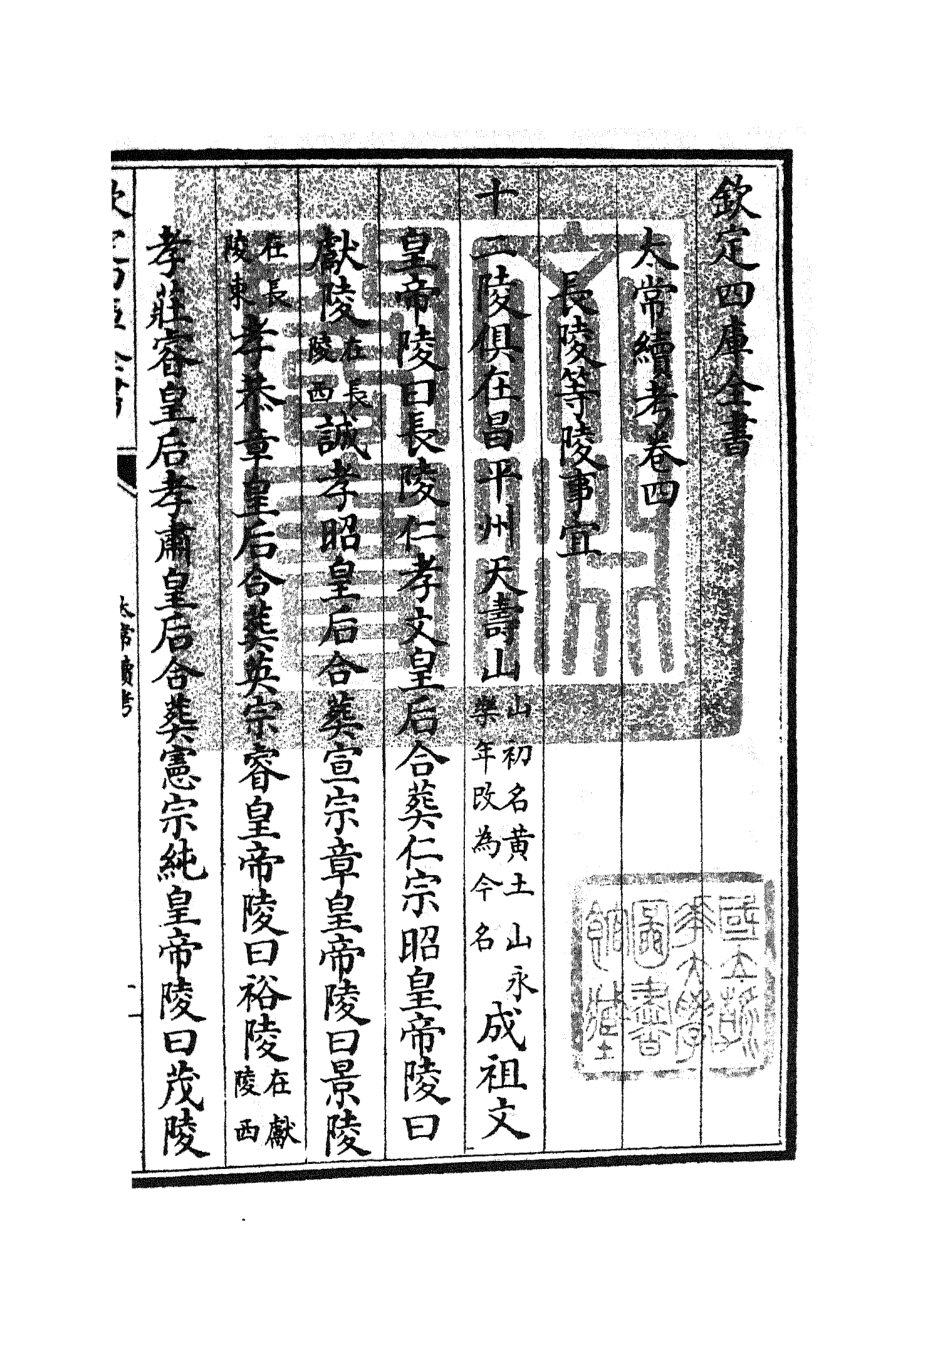 欽定四庫全書
太常續考卷四
長陵等陵事宜
十二陵俱在昌平州天壽山山初名黄土山永樂年改為今名成祖文
皇帝陵曰長陵仁孝文皇后合葬仁宗昭皇帝陵曰
獻陵在長陵西誠孝昭皇后合葬宣宗章皇帝陵曰景陵
在長陵東孝恭章皇后合葬英宗睿皇帝陵曰裕陵在獻陵西
孝莊睿皇后孝肅皇后合葬憲宗純皇帝陵曰茂陵
太常續考